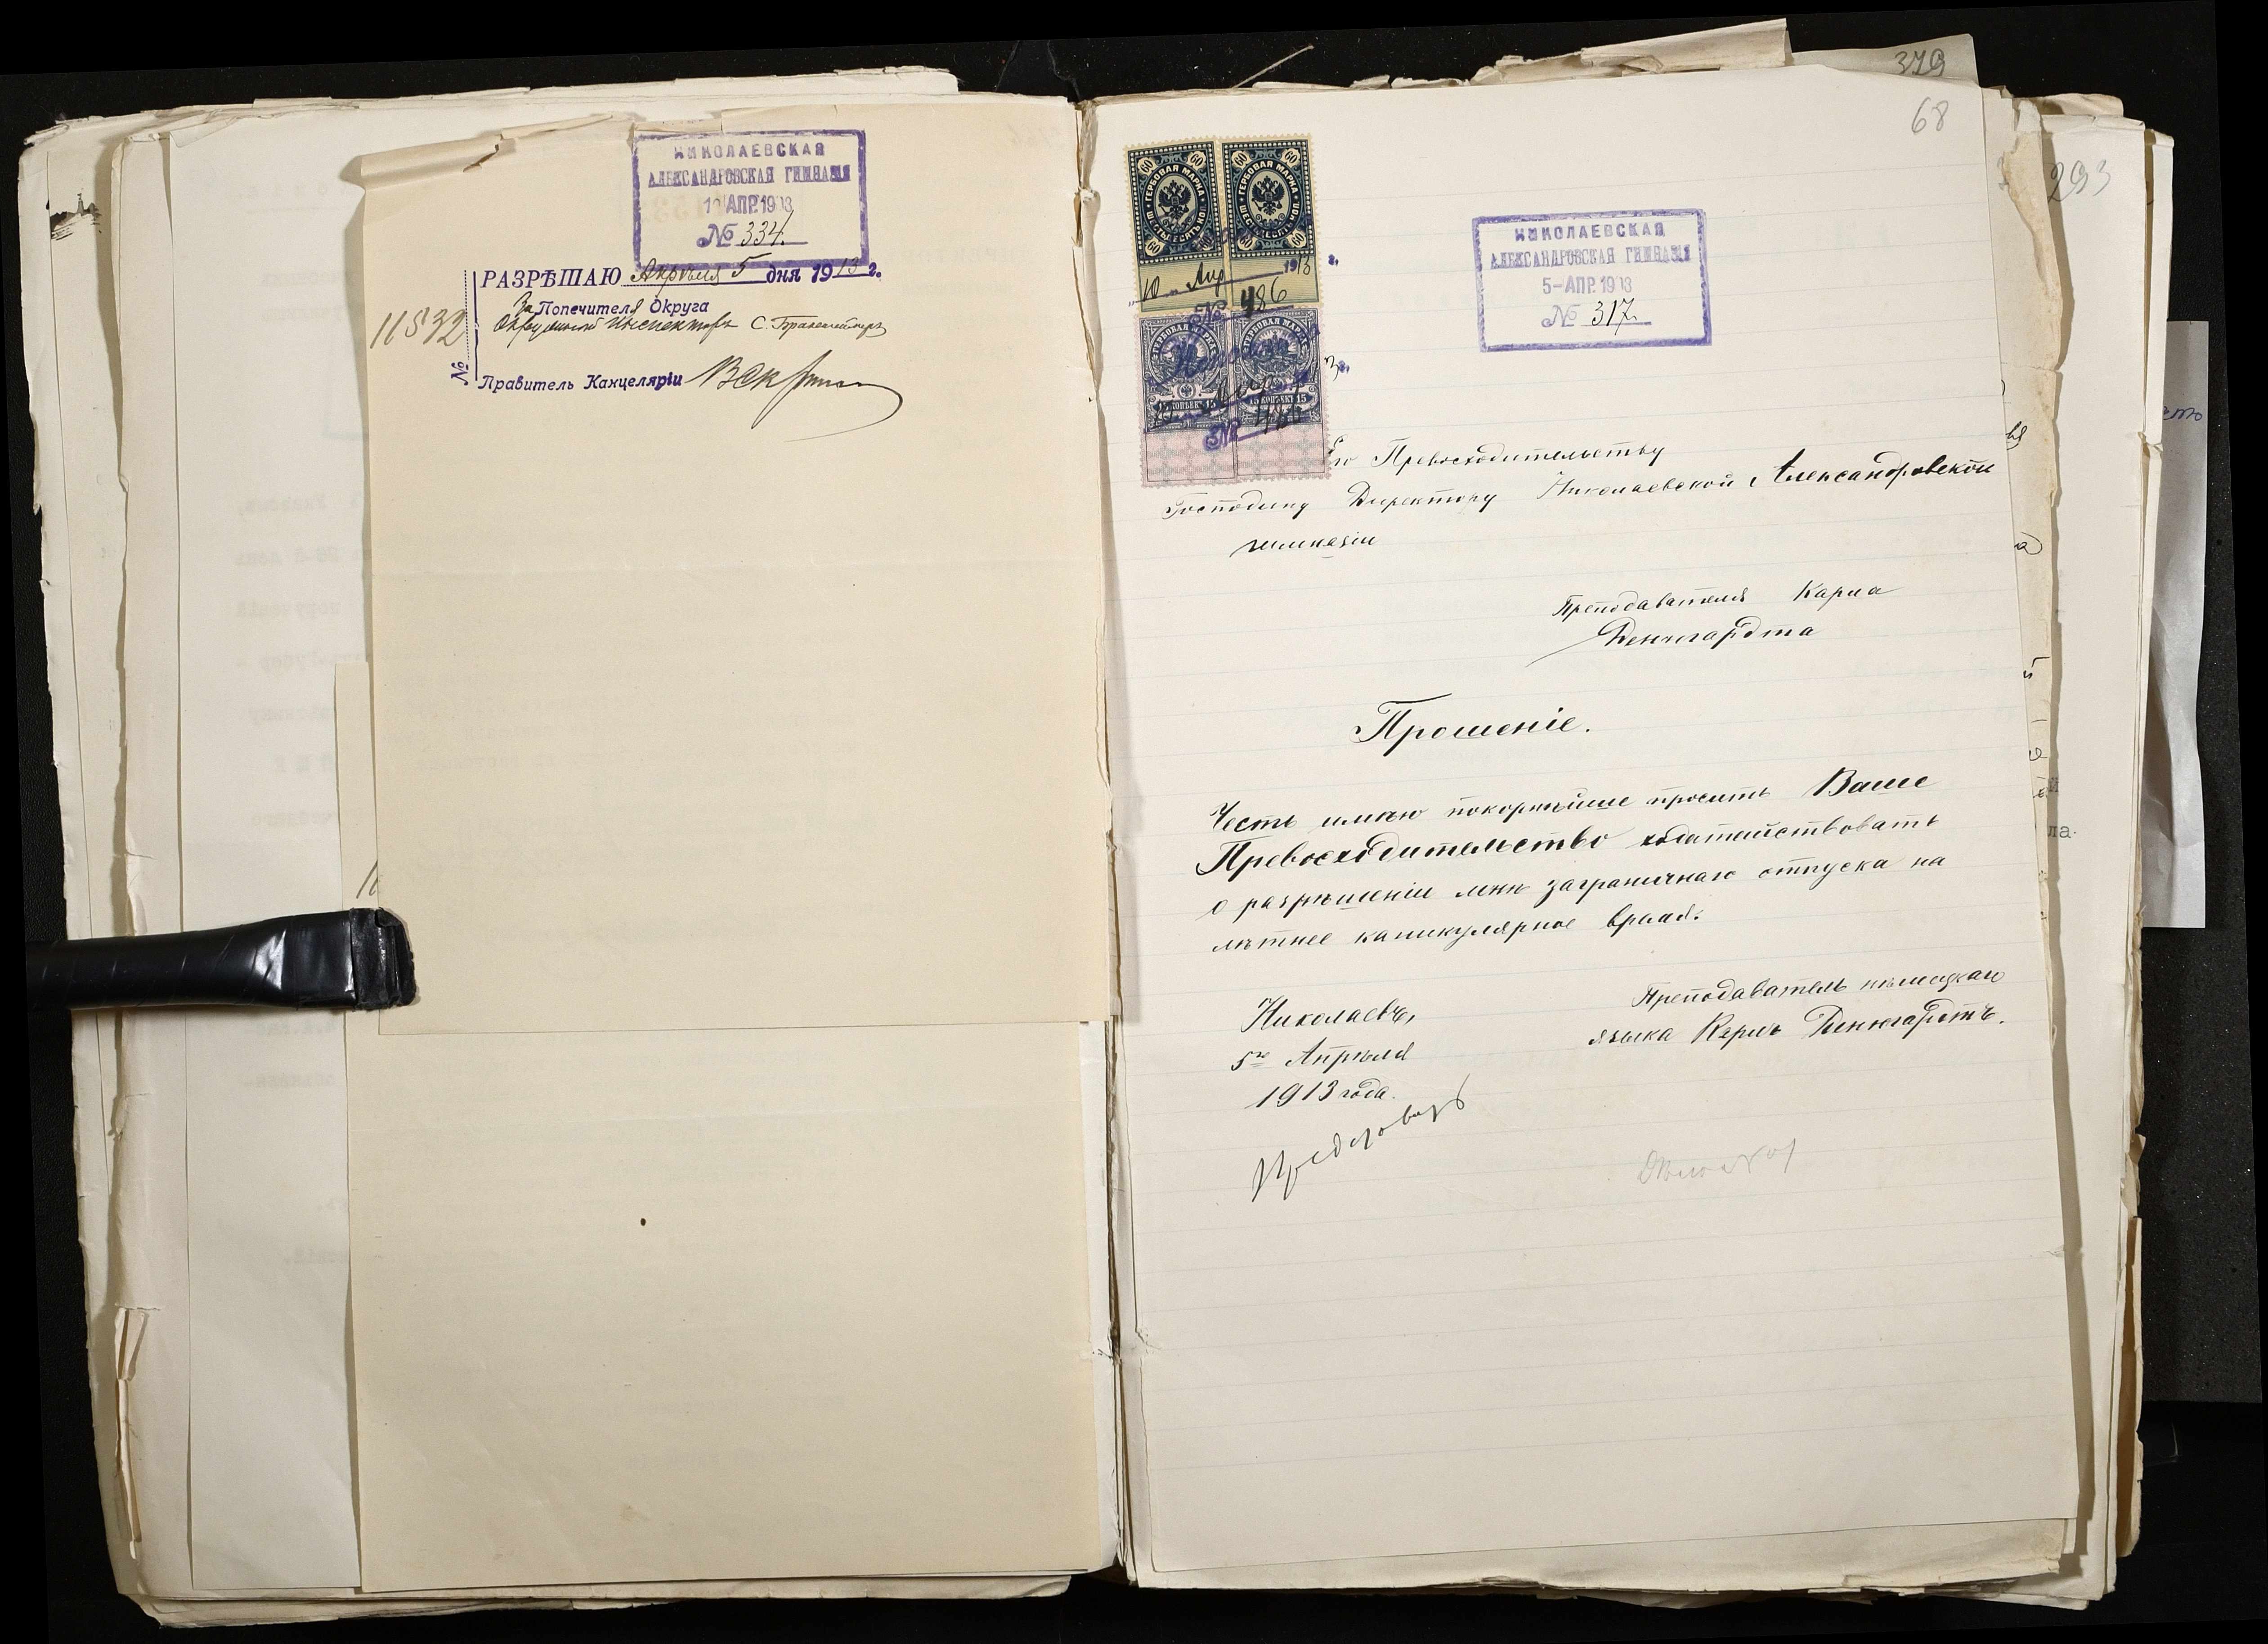 НИКОЛАЕВСКАЯ
АЛЕКСАНДРОВСКАЯ ГИМНАЗІЯ
10 АПР. 1913
№ 334.
РАЗРѢШАЮ Апрѣля 5 дня 1913 г.
За Попечителя Округа
Окружной Инспекторъ С.
11532
№
Правитель Канцеляріи
379
68
293
ГЕРБОВАЯ МАРКА
60
ГЕРБОВАЯ МАРКА
60
10 Апр. 1913 г.
№ 486
15 КОПѢЕКЪ 15
15 КОПѢЕКЪ 15
№ 486
НИКОЛАЕВСКАЯ
АЛЕКСАНДРОВСКАЯ ГИМНАЗІЯ
5-АПР. 1913
№ 317.
Его Превосходительству
Господину Директору Николаевской Александровской
гимназіи
Преподавателя Карла
Денгардта
Прошеніе.
Честь имѣю покорнѣйше просить Ваше
Превосходительство ходатайствовать
о разрѣшеніи мнѣ заграничнаго отпуска на
лѣтнее каникулярное время.
Преподаватель нѣмецкаго
языка Карлъ Денгардтъ.
Николаевъ,
5го Апрѣля
1913 года.